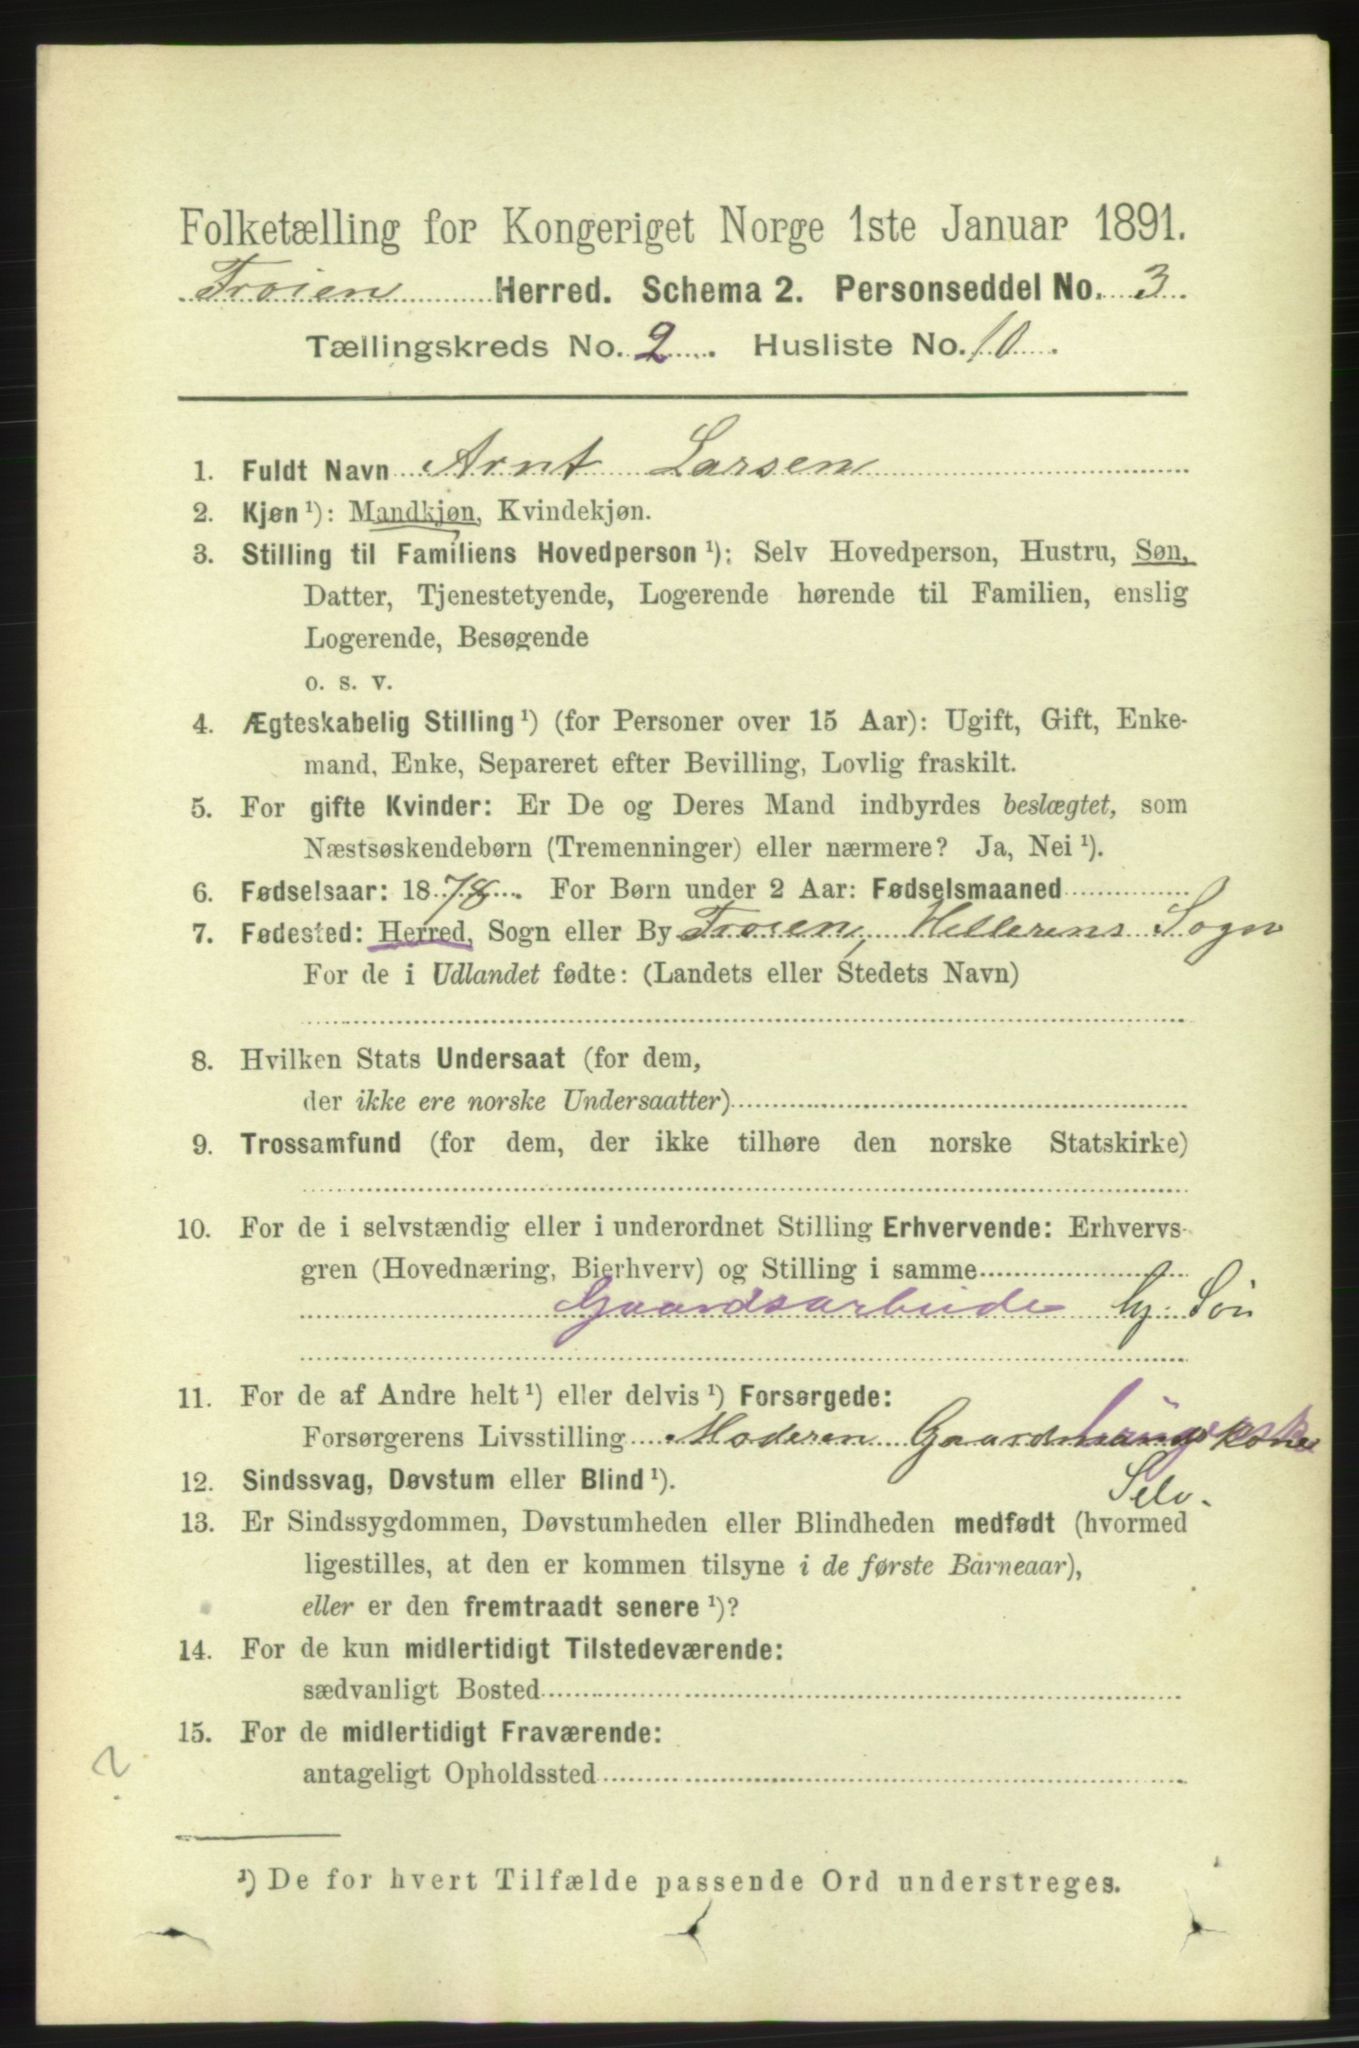 Folketælling for Kongeriget Norge 1ste Januar 1891.
Froien Herred. Schema 2. Personseddel No. 3.
Tællingskreds No. 2. Husliste No. 10.
1. Fuldt Navn Arnt Larsen
2. Kjøn ¹): Mandkjøn, Kvindekjøn.
3. Stilling til Familiens Hovedperson ¹): Selv Hovedperson, Hustru, Søn,
Datter, Tjenestetyende, Logerende hørende til Familien, enslig
Logerende, Besøgende
o. s. v.
4. Ægteskabelig Stilling ¹) (for Personer over 15 Aar): Ugift, Gift, Enke-
mand, Enke, Separeret efter Bevilling, Lovlig fraskilt.
5. For gifte Kvinder: Er De og Deres Mand indbyrdes beslægtet, som
Næstsøskendebørn (Tremenninger) eller nærmere? Ja, Nei ¹).
6. Fødselsaar: 1878. For Børn under 2 Aar: Fødselsmaaned
7. Fødested: Herred, Sogn eller By Froien, Hellerens Sogn
For de i Udlandet fødte: (Landets eller Stedets Navn)
8. Hvilken Stats Undersaat (for dem,
der ikke ere norske Undersaatter)
9. Trossamfund (for dem, der ikke tilhøre den norske Statskirke)
10. For de i selvstændig eller i underordnet Stilling Erhvervende: Erhvervs-
gren (Hovednæring, Bierhverv) og Stilling i samme
Gaardsarbeide hj. Søn
11. For de af Andre helt ¹) eller delvis ¹) Forsørgede:
Forsørgerens Livsstilling Moderen Gaardmandskone
Selv.
12. Sindssvag, Døvstum eller Blind ¹).
13. Er Sindssygdommen, Døvstumheden eller Blindheden medfødt (hvormed
ligestilles, at den er kommen tilsyne i de første Barneaar),
eller er den fremtraadt senere ¹)?
14. For de kun midlertidigt Tilstedeværende:
sædvanligt Bosted
15. For de midlertidigt Fraværende:
antageligt Opholdssted
?
¹) De for hvert Tilfælde passende Ord understreges.